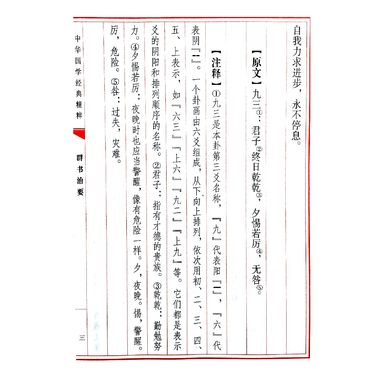 自我力求进步，永不停息。
【原文】九三①：君子②终日乾乾③，夕惕若厉④，无咎⑤。
【注释】①九三是本卦第三爻名称，『九』代表阳『—』，『六』代
表阴『--』。一个卦画由六爻组成，从下向上排列，依次用初、二、三、四、
五、上表示，如『六三』『上六』『九二』『上九』等。它们都是表示
爻的阴阳和排列顺序的名称。②君子：指有才德的贵族。③乾乾：勤勉努
力。④夕惕若厉：夜晚时也应当警醒，像有危险一样。夕，夜晚。惕，警醒。
厉，危险。⑤咎：过失，灾难。
中华国学经典精粹
群书治要
三